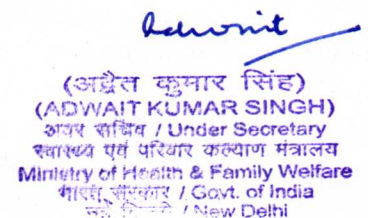 Adwait
(अद्वैत कुमार सिंह)
(ADWAIT KUMAR SINGH)
अवर सचिव / Under Secretary
स्वास्थ्य एवं परिवार कल्याण मंत्रालय
Ministry of Health & Family Welfare
भारत सरकार / Govt. of India
नई दिल्ली / New Delhi